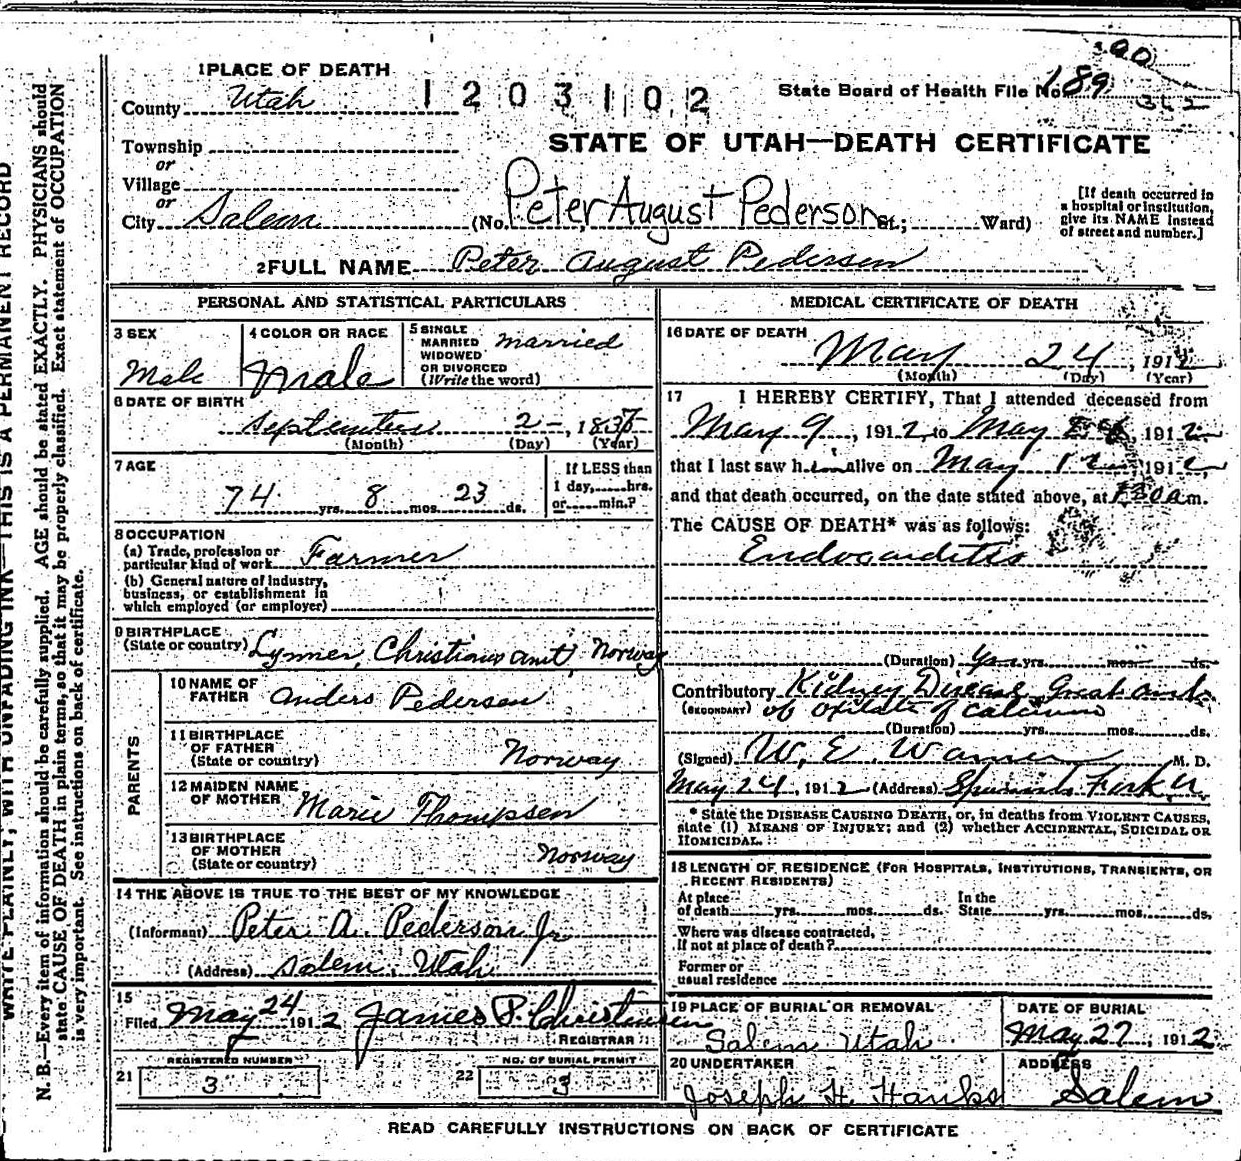 1 PLACE OF DEATH
County Utah
1203102
State Board of Health File No. 189
90
362
STATE OF UTAH—DEATH CERTIFICATE
Township
or
Village
or
City Salem (No. Peter August Pederson St.; Ward)
[If death occurred in
a hospital or institution,
give its NAME instead
of street and number.]
2 FULL NAME Peter August Pedersen
PERSONAL AND STATISTICAL PARTICULARS
3 SEX
Male
4 COLOR OR RACE
Male
5 SINGLE
MARRIED
WIDOWED
OR DIVORCED
(Write the word)
married
6 DATE OF BIRTH
September 2, 1837
(Month) (Day) (Year)
7 AGE
74 yrs. 8 mos. 23 ds.
If LESS than
1 day, hrs.
or min.?
8 OCCUPATION
(a) Trade, profession or
particular kind of work Farmer
(b) General nature of industry,
business, or establishment in
which employed (or employer)
9 BIRTHPLACE
(State or country) Lynner, Christians amt, Norway
PARENTS
10 NAME OF
FATHER Anders Pedersen
11 BIRTHPLACE
OF FATHER
(State or country) Norway
12 MAIDEN NAME
OF MOTHER Marie Thompsen
13 BIRTHPLACE
OF MOTHER
(State or country) Norway
14 THE ABOVE IS TRUE TO THE BEST OF MY KNOWLEDGE
(Informant) Peter A. Pederson Jr
(Address) Salem, Utah
15
Filed May 24 1912 James P. Christensen
REGISTRAR
REGISTERED NUMBER
21 3
NO. OF BURIAL PERMIT
22 3
MEDICAL CERTIFICATE OF DEATH
16 DATE OF DEATH
May 24, 1912
(Month) (Day) (Year)
17 I HEREBY CERTIFY, That I attended deceased from
May 9, 1912, to May, 1912
that I last saw him alive on May 12, 1912
and that death occurred, on the date stated above, at 730 a m.
The CAUSE OF DEATH* was as follows:
Endocarditis
(Duration) yrs. mos. ds.
Contributory Kidney Disease Great amts.
(SECONDARY) of oxilate of calcium
(Duration) yrs. mos. ds.
(Signed) W. E. Warner M. D.
May 24, 1912 (Address) Spanish Fork U.
* State the DISEASE CAUSING DEATH, or, in deaths from VIOLENT CAUSES,
state (1) MEANS OF INJURY; and (2) whether ACCIDENTAL, SUICIDAL OR
HOMICIDAL.
18 LENGTH OF RESIDENCE (FOR HOSPITALS, INSTITUTIONS, TRANSIENTS, OR
RECENT RESIDENTS)
At place
of death yrs. mos. ds.
In the
State yrs. mos. ds.
Where was disease contracted,
If not at place of death?
Former or
usual residence
19 PLACE OF BURIAL OR REMOVAL
Salem Utah
DATE OF BURIAL
May 27, 1912
20 UNDERTAKER
Joseph H. Hanks
ADDRESS
Salem
READ CAREFULLY INSTRUCTIONS ON BACK OF CERTIFICATE
WRITE PLAINLY, WITH UNFADING INK—THIS IS A PERMANENT RECORD
N. B.—Every item of information should be carefully supplied. AGE should be stated EXACTLY. PHYSICIANS should
state CAUSE OF DEATH in plain terms, so that it may be properly classified. Exact statement of OCCUPATION
is very important. See instructions on back of certificate.